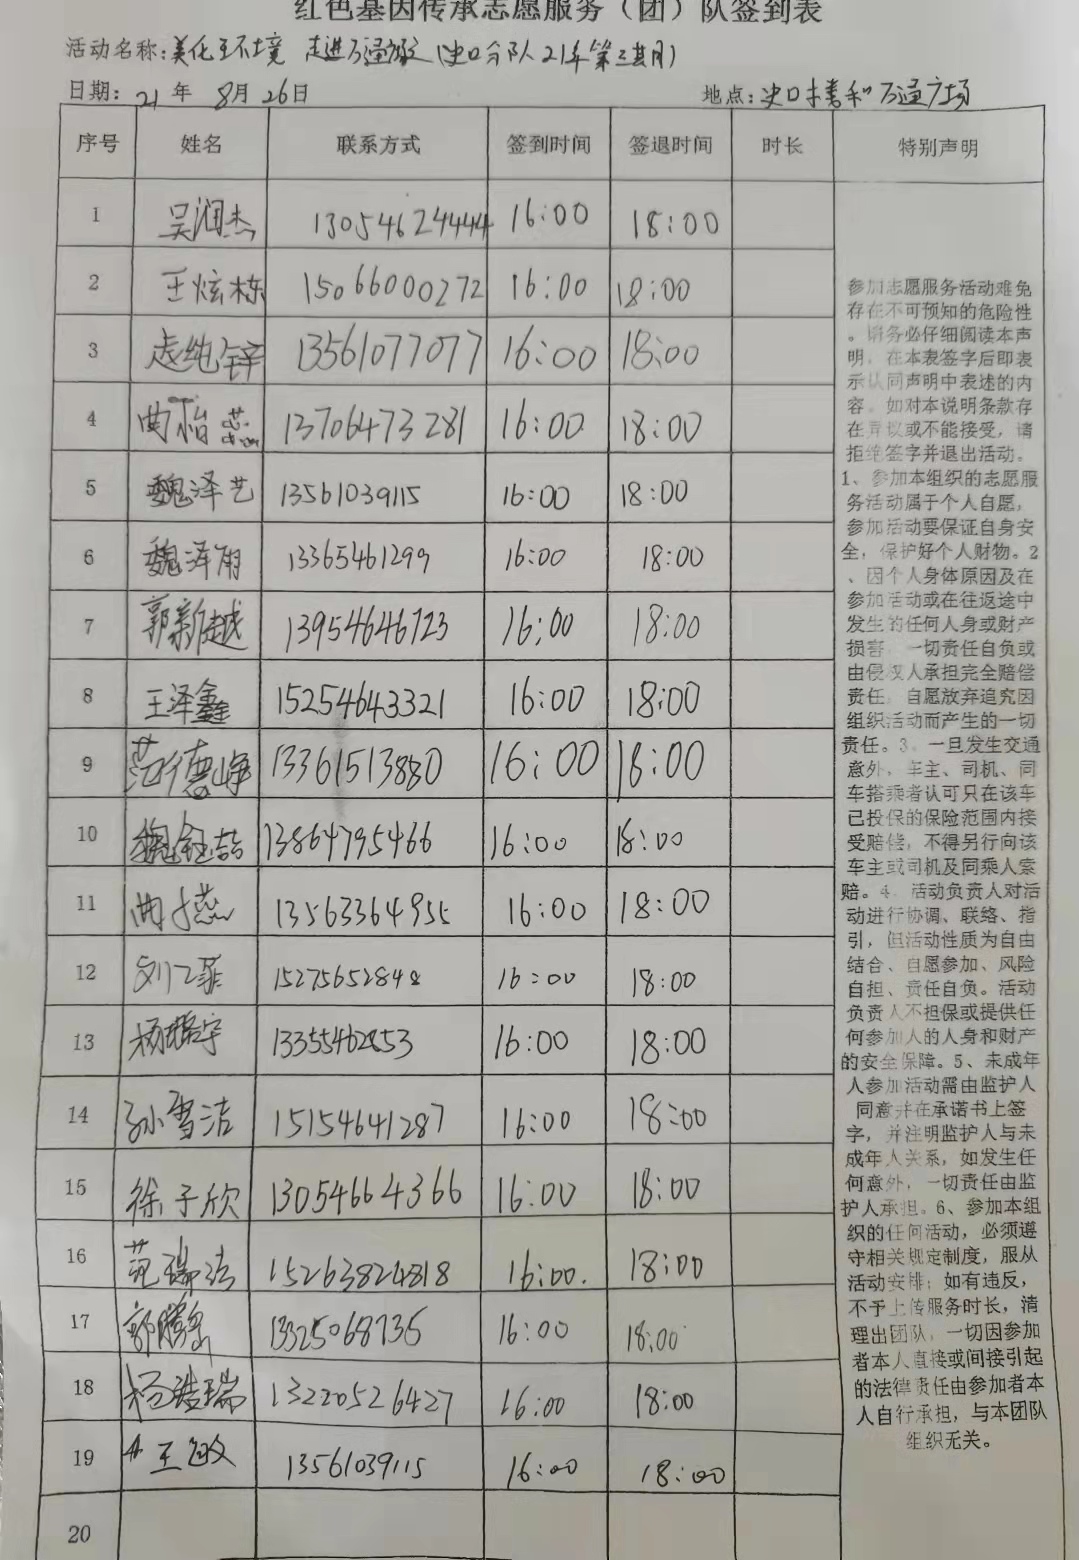 红色基因传承志愿服务（团）队签到表
活动名称：美化环境 走进万通 （史口分队21年第三其月）
日期：21年 8月26日 地点：史口 和万通广场
序号 姓名 联系方式 签到时间 签退时间 时长 特别声明
1 吴润杰 13054624444 16:00 18:00
2 王炫栋 15066000272 16:00 18:00
3 纯锌 13561077077 16:00 18:00
4 曲怡 13706473281 16:00 18:00
5 魏泽艺 13561039115 16:00 18:00
6 魏泽雨 13365461299 16:00 18:00
7 郭新越 13954646723 16:00 18:00
8 王泽鑫 15254643321 16:00 18:00
9 范德峥 13361513880 16:00 18:00
10 魏钰喆 13864795466 16:00 18:00
11 曲 13563364955 16:00 18:00
12 刘 菲 15275652848 16:00 18:00
13 杨 宇 16:00 18:00
14 孙雪洁 15154641287 16:00 18:00
15 徐子欣 13054664366 16:00 18:00
16 范瑞洁 15263824818 16:00. 18:00
17 郭腾 13325068735 16:00 18:00
18 杨 瑞 13220526427 16:00 18:00
19 王敏 13561039115 16:00 18:00
20
参加志愿服务活动难免
存在不可预知的危险性
。请务必仔细阅读本声
明，在本表签字后即表
示认同声明中表述的内
容。如对本说明条款存
在异议或不能接受，请
拒绝签字并退出活动。
1、参加本组织的志愿服
务活动属于个人自愿，
参加活动要保证自身安
全，保护好个人财物。2
、因个人身体原因及在
参加活动或在往返途中
发生的任何人身或财产
损害，一切责任自负或
由侵权人承担完全赔偿
责任，自愿放弃追究因
组织活动而产生的一切
责任。3、一旦发生交通
意外，车主、司机、同
车搭乘者认可只在该车
已投保的保险范围内接
受赔偿，不得另行向该
车主或司机及同乘人索
赔。4、活动负责人对活
动进行协调、联络、指
引，但活动性质为自由
结合、自愿参加、风险
自担、责任自负。活动
负责人不担保或提供任
何参加人的人身和财产
的安全保障。5、未成年
人参加活动需由监护人
同意并在承诺书上签
字，并注明监护人与未
成年人关系，如发生任
何意外，一切责任由监
护人承担。6、参加本组
织的任何活动，必须遵
守相关规定制度，服从
活动安排；如有违反，
不予上传服务时长，清
理出团队，一切因参加
者本人直接或间接引起
的法律责任由参加者本
人自行承担，与本团队
组织无关。